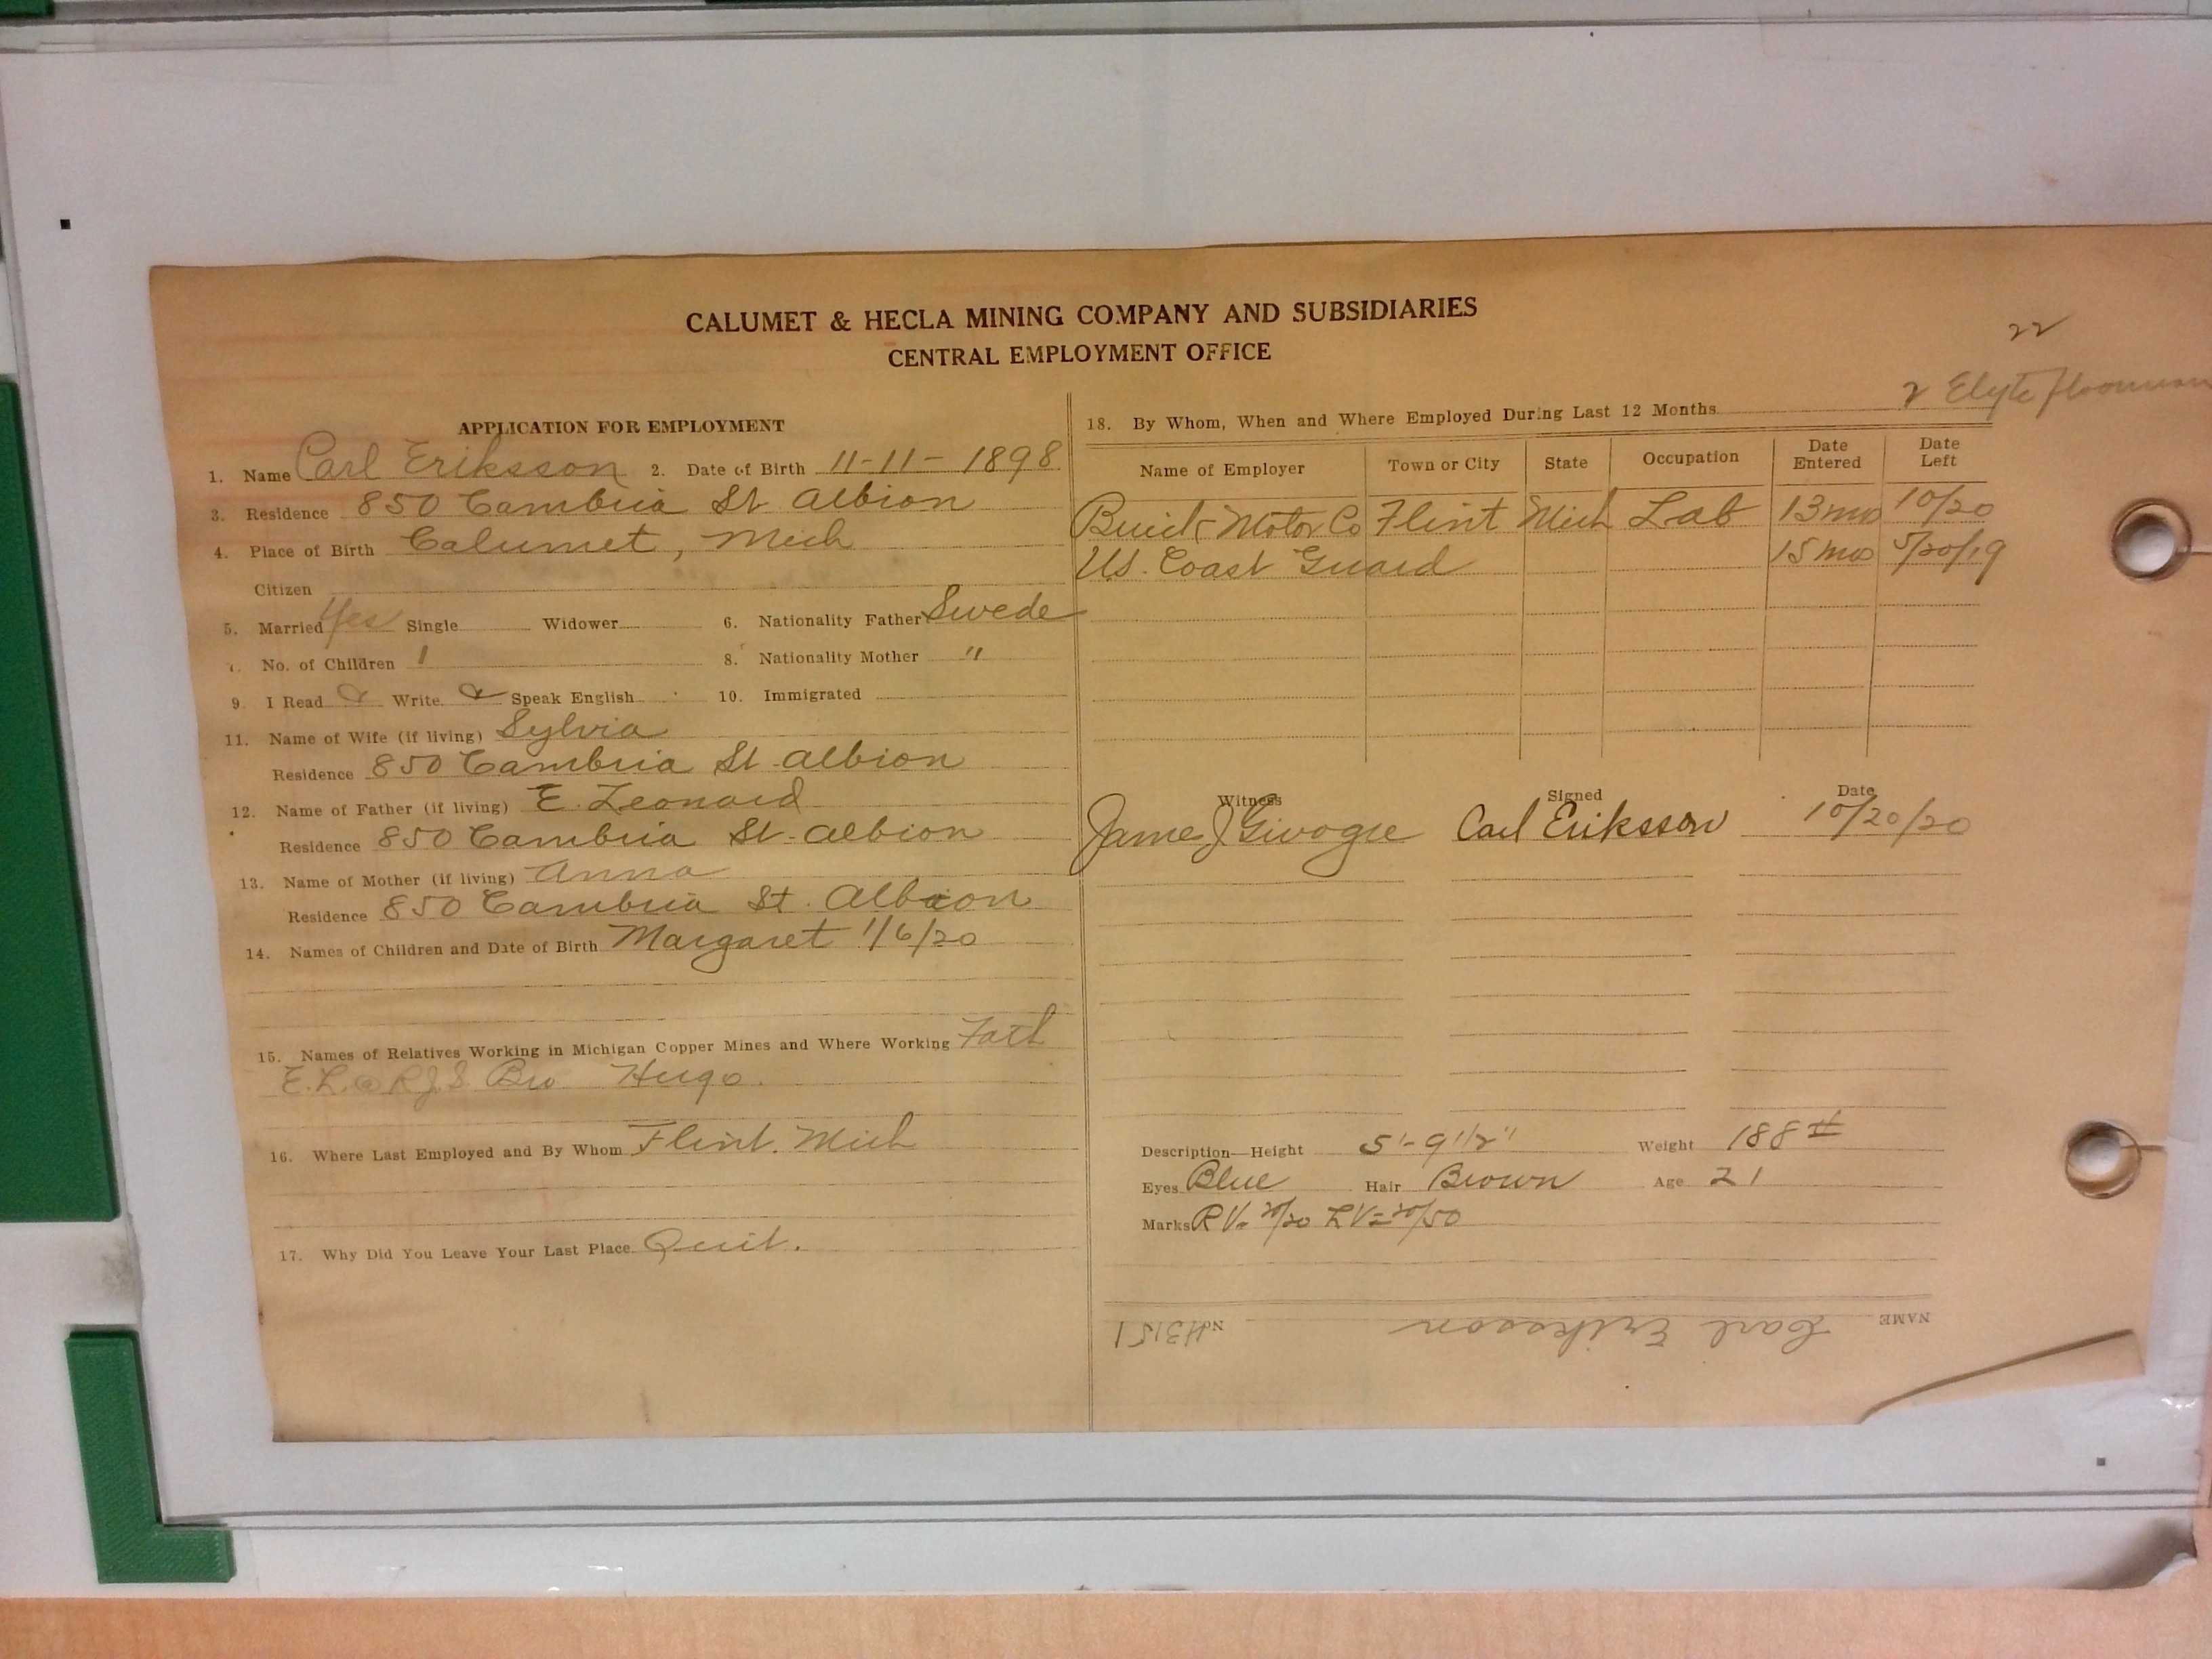 CALUMET & HECLA MINING COMPANY AND SUBSIDIARIES
CENTRAL EMPLOYMENT OFFICE
22
2 Elyte floorman
APPLICATION FOR EMPLOYMENT
1. Name Carl Eriksson 2. Date of Birth 11-11-1898
3. Residence 850 Cambria St Albion
4. Place of Birth Calumet, Mich
Citizen
5. Married Yes Single Widower 6. Nationality Father Swede
7. No. of Children 1 8. Nationality Mother "
9 I Read Write Speak English 10. Immigrated
11. Name of Wife (if living) Sylvia
Residence 850 Cambria St Albion
12. Name of Father (if living) E. Leonard
Residence 850 Cambria St. Albion
13. Name of Mother (if living) Anna
Residence 850 Cambria St. Albion
14. Names of Children and Date of Birth Margaret 1/6/20
15. Names of Relatives Working in Michigan Copper Mines and Where Working Fath
E.L. @ R.J.S. Bro Hugo.
16. Where Last Employed and By Whom Flint. Mich
17. Why Did You Leave Your Last Place Quit.
18. By Whom, When and Where Employed During Last 12 Months
Name of Employer Town or City State Occupation Date Entered Date Left
Buick Motor Co Flint Mich Lab 13 mo 10/20
U.S. Coast Guard 15 mo 5/20/19
Witness Signed Date
James J Carl Eriksson 10/20/20
Description—Height 5'-9 1/2" Weight 188 #
Eyes Blue Hair Brown Age 21
Marks R V= 20/20 L V= 20/50
NAME Carl Eriksson No. H3151